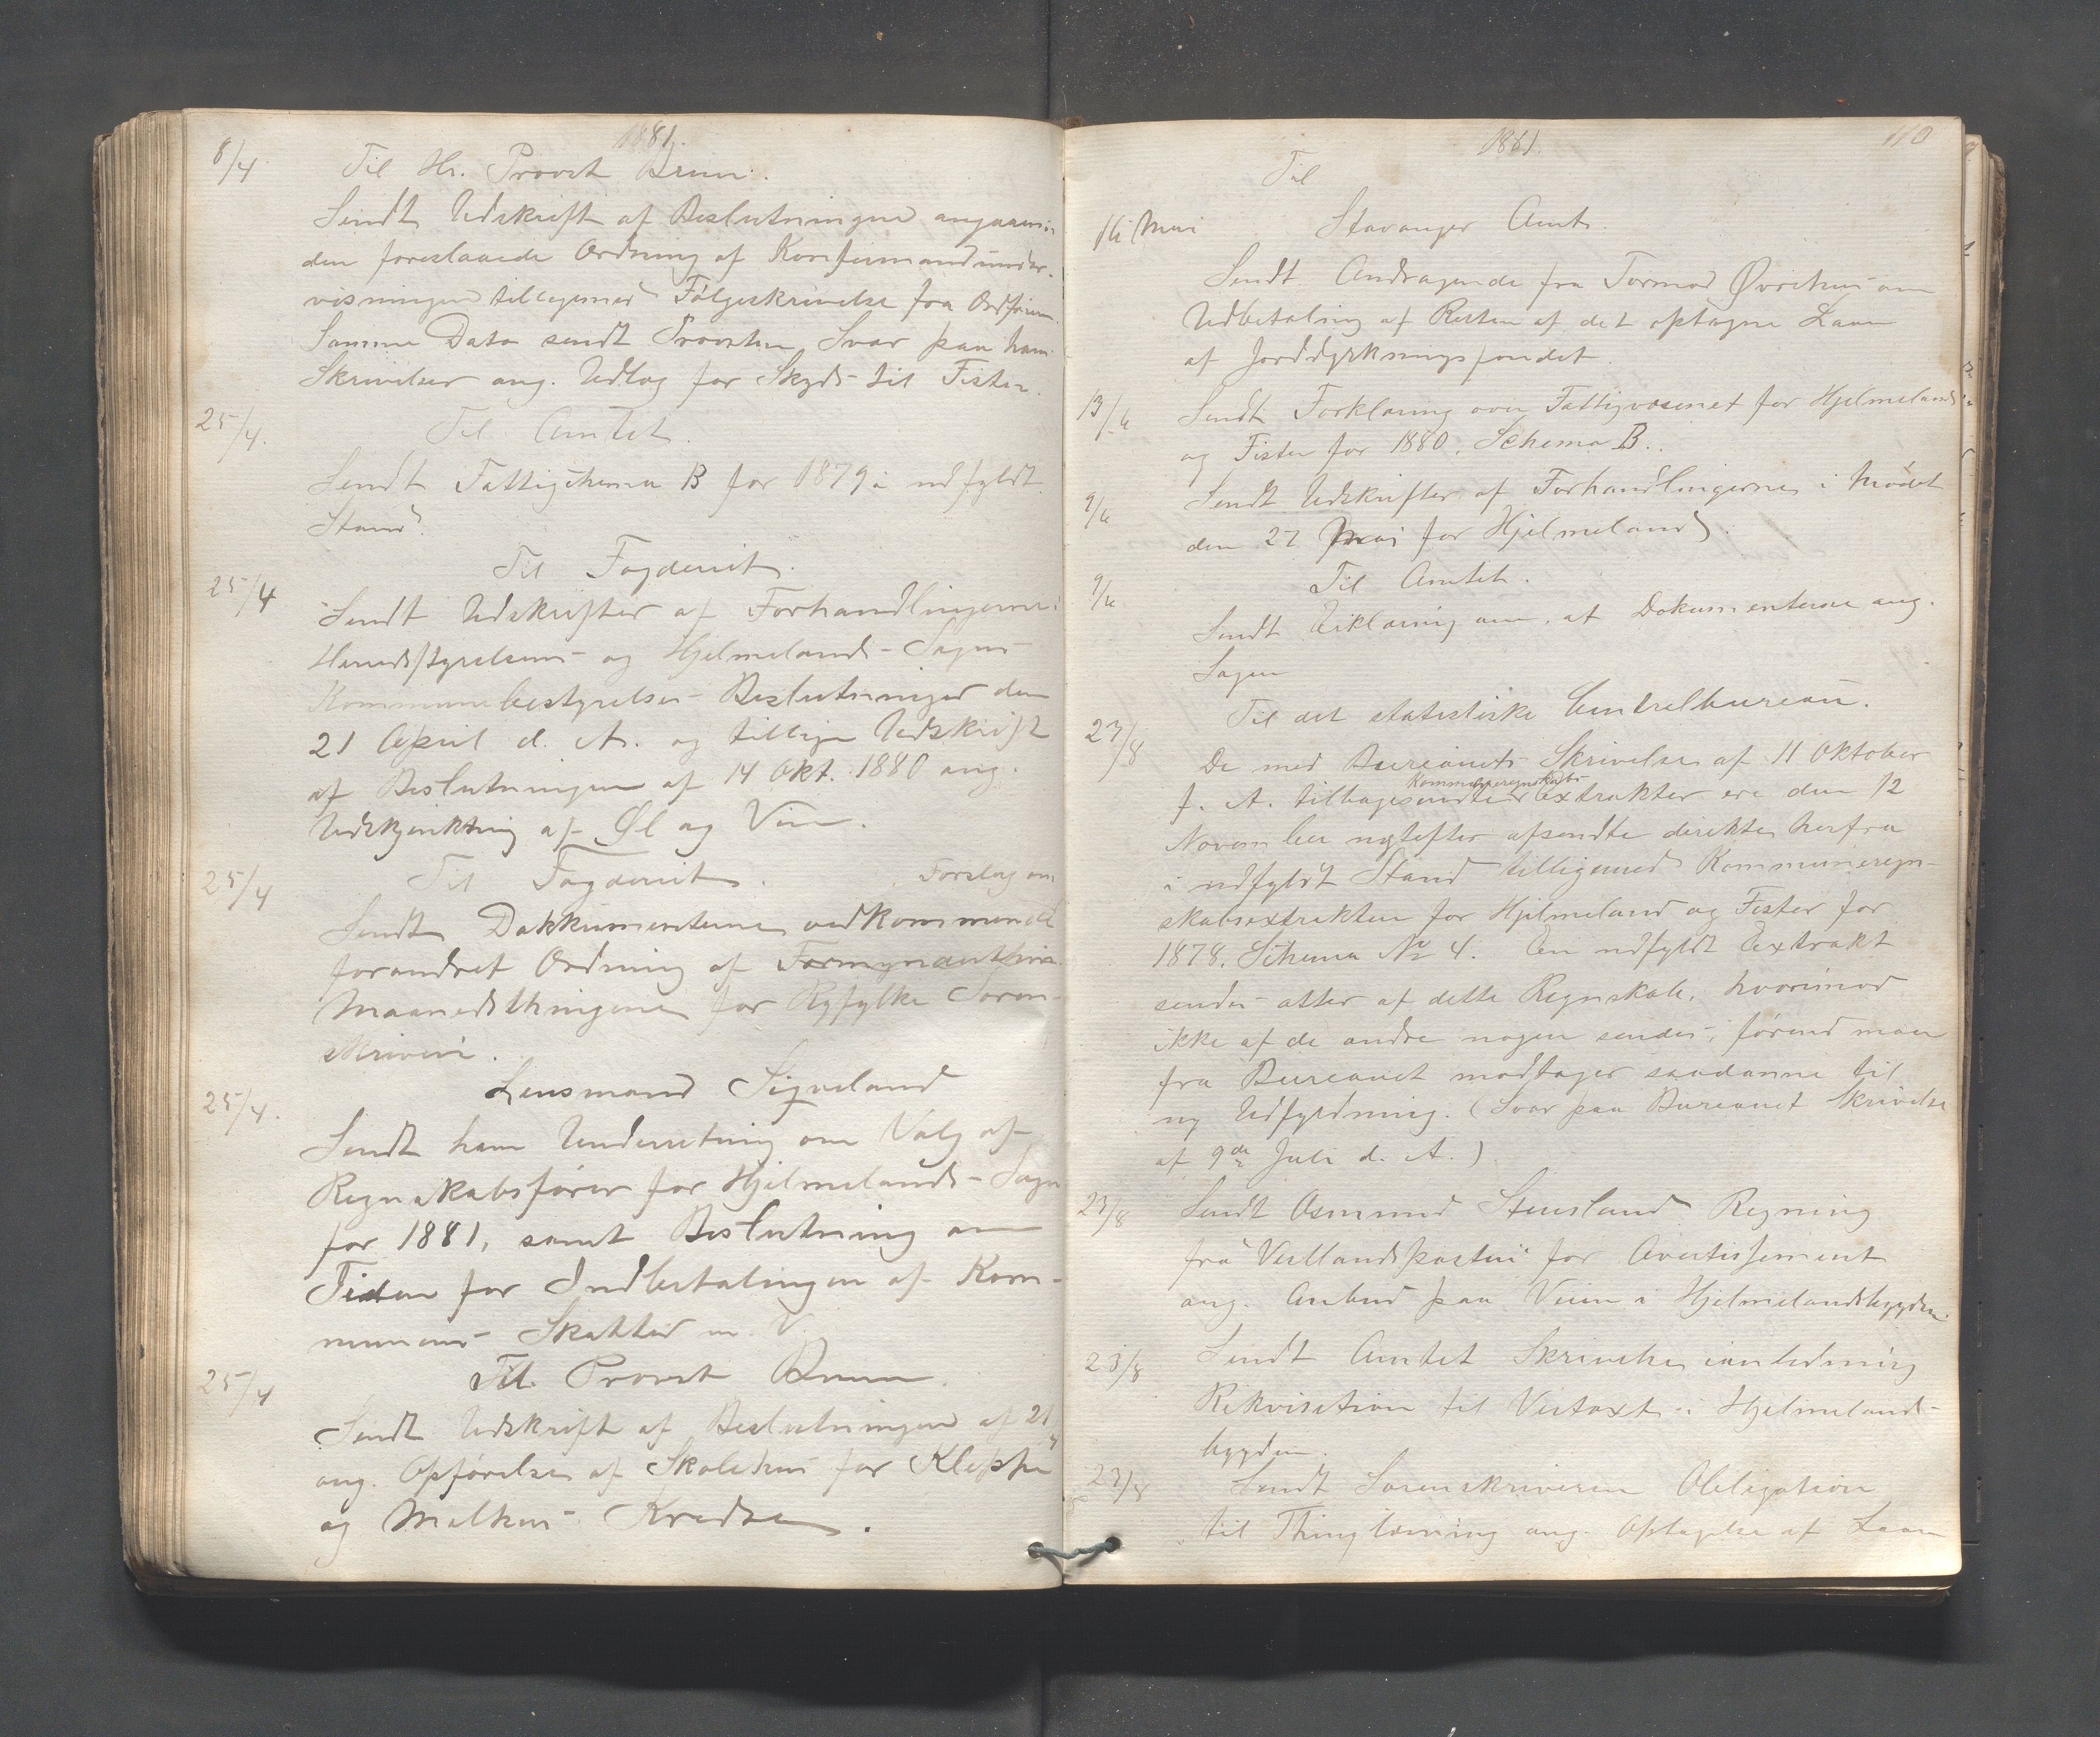 1881.
8/4 Til Hr. Provst Bruun.
Sendt Udskrift af Beslutningen angaaende
den foreslaaede Ordning af Konfirmandunder-
visningen tilligemed Følgeskrivelse fra Ordføren.
Samme Dato sendt Provsten Svar paa hans
Skrivelser ang. Udlæg for Skyds til Fister.
25/4. Til Amtet.
Sendt Fattigschema B for 1879 i udfyldt
Stand.
25/4 Til Fogderiet.
Sendt Udskrifter af Forhandlingerne i
Herredsstyrelsens og Hjelmelands-Sogns
Kommunebestyrelses Beslutninger den
21 April d. A. og tillige Udskrift
af Beslutningen af 14 Okt. 1880 ang.
Udskjenkning af Øl og Vin.
25/4 Til Fogderiet. Forslag om
Sendt Dokkumenterne vedkommende
forandret Ordning af
Maanedsthingene for Ryfylke Soren-
skriveri.
25/4. Lensmand Sigveland
Sendt ham Underretning om Valg af
Regnskabsfører for Hjelmelands-Sogn
for 1881, samt Beslutning om
Tiden for Indbetalingen af Kom-
munens Skatter m. V.
25/4 Til Provst Bruun.
Sendt Udskrift af Beslutningen af 21/4
ang. Opførelse af Skolehus for Kleppe
og Melhus Kredse.
110
1881.
Til
16 Mai Stavanger Amt.
Sendt Andragende fra Tormod Øvrehus om
Udbetaling af Resten af det optagne Laan
af Jorddyrkningsfondet.
13/6 Sendt Forklaring over Fattigvæsenet for Hjelmeland
og Fister for 1880. Schema B.
9/6 Sendt Udskrifter af Forhandlingerne i Mødet
den 27 Mai for Hjelmeland.
9/6 Til Amtet.
Sendt Erklæring om, at Dokumenterne ang.
Sagen
23/8 Til det statistiske Centralbureau.
De med Bureauets Skrivelse af 11 Oktober
f. A. tilbagesendte Kommuneregnskabs-Extrakter ere den 12
November næstefter afsendte direkte herfra
i udfyldt Stand tilligemed Kommuneregn-
skabsextrakten for Hjelmeland og Fister for
1878. Schema No 4. En udfyldt Extrakt
sendes atter af dette Regnskab, hvorimod
ikke af de andre nogen sendes, førend man
fra Bureauet modtager saadanne til
ny Udfyldning. (Svar paa Bureauet Skrivelse
af 9de Juli d. A.)
23/8 Sendt Osmund Stensland Regning
fra Vestlandsposten for Avertissement
ang. Anbud paa Veien i Hjelmelandsbygden.
23/8 Sendt Amtet Skrivelse ianledning
Rekvisition til Veitaxt i Hjelmelands-
bygden.
23/8 Sendt Sorenskriveren Obligation
til Thinglæsning ang. Optagelse af Laan